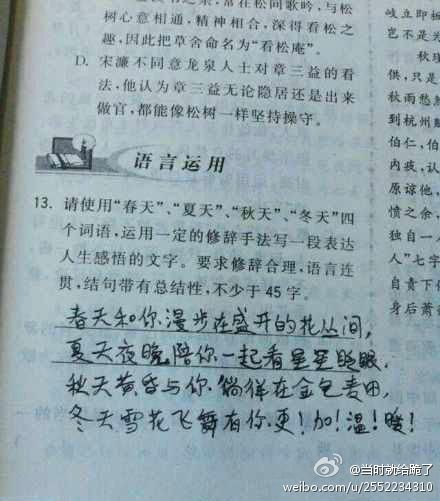 松树之余，常在松间歌吟，与松
树心意相通，精神相合，深得看松之
趣，因此把草舍命名为“看松庵”。
D. 宋濂不同意龙泉人士对章三益的看
法，他认为章三益无论隐居还是出来
做官，都能像松树一样坚持操守。
语言运用
13. 请使用“春天”、“夏天”、“秋天”、“冬天”四
个词语，运用一定的修辞手法写一段表达
人生感悟的文字。要求修辞合理，语言连
贯，结句带有总结性，不少于 45 字。
春天和你漫步在盛开的花丛间，
夏天夜晚陪你一起看星星眨眼，
秋天黄昏与你徜徉在金色麦田，
冬天雪花飞舞有你更！加！温！暖！
岐立即
岂不是为
秋瑾
供，只是
秋雨愁
到杭州
伯仁，伯
内疚，认
原谅他，
愤之余，
独自一
人”七字
自责下
身后萧
@当时就给跪了
weibo.com/u/2552234310